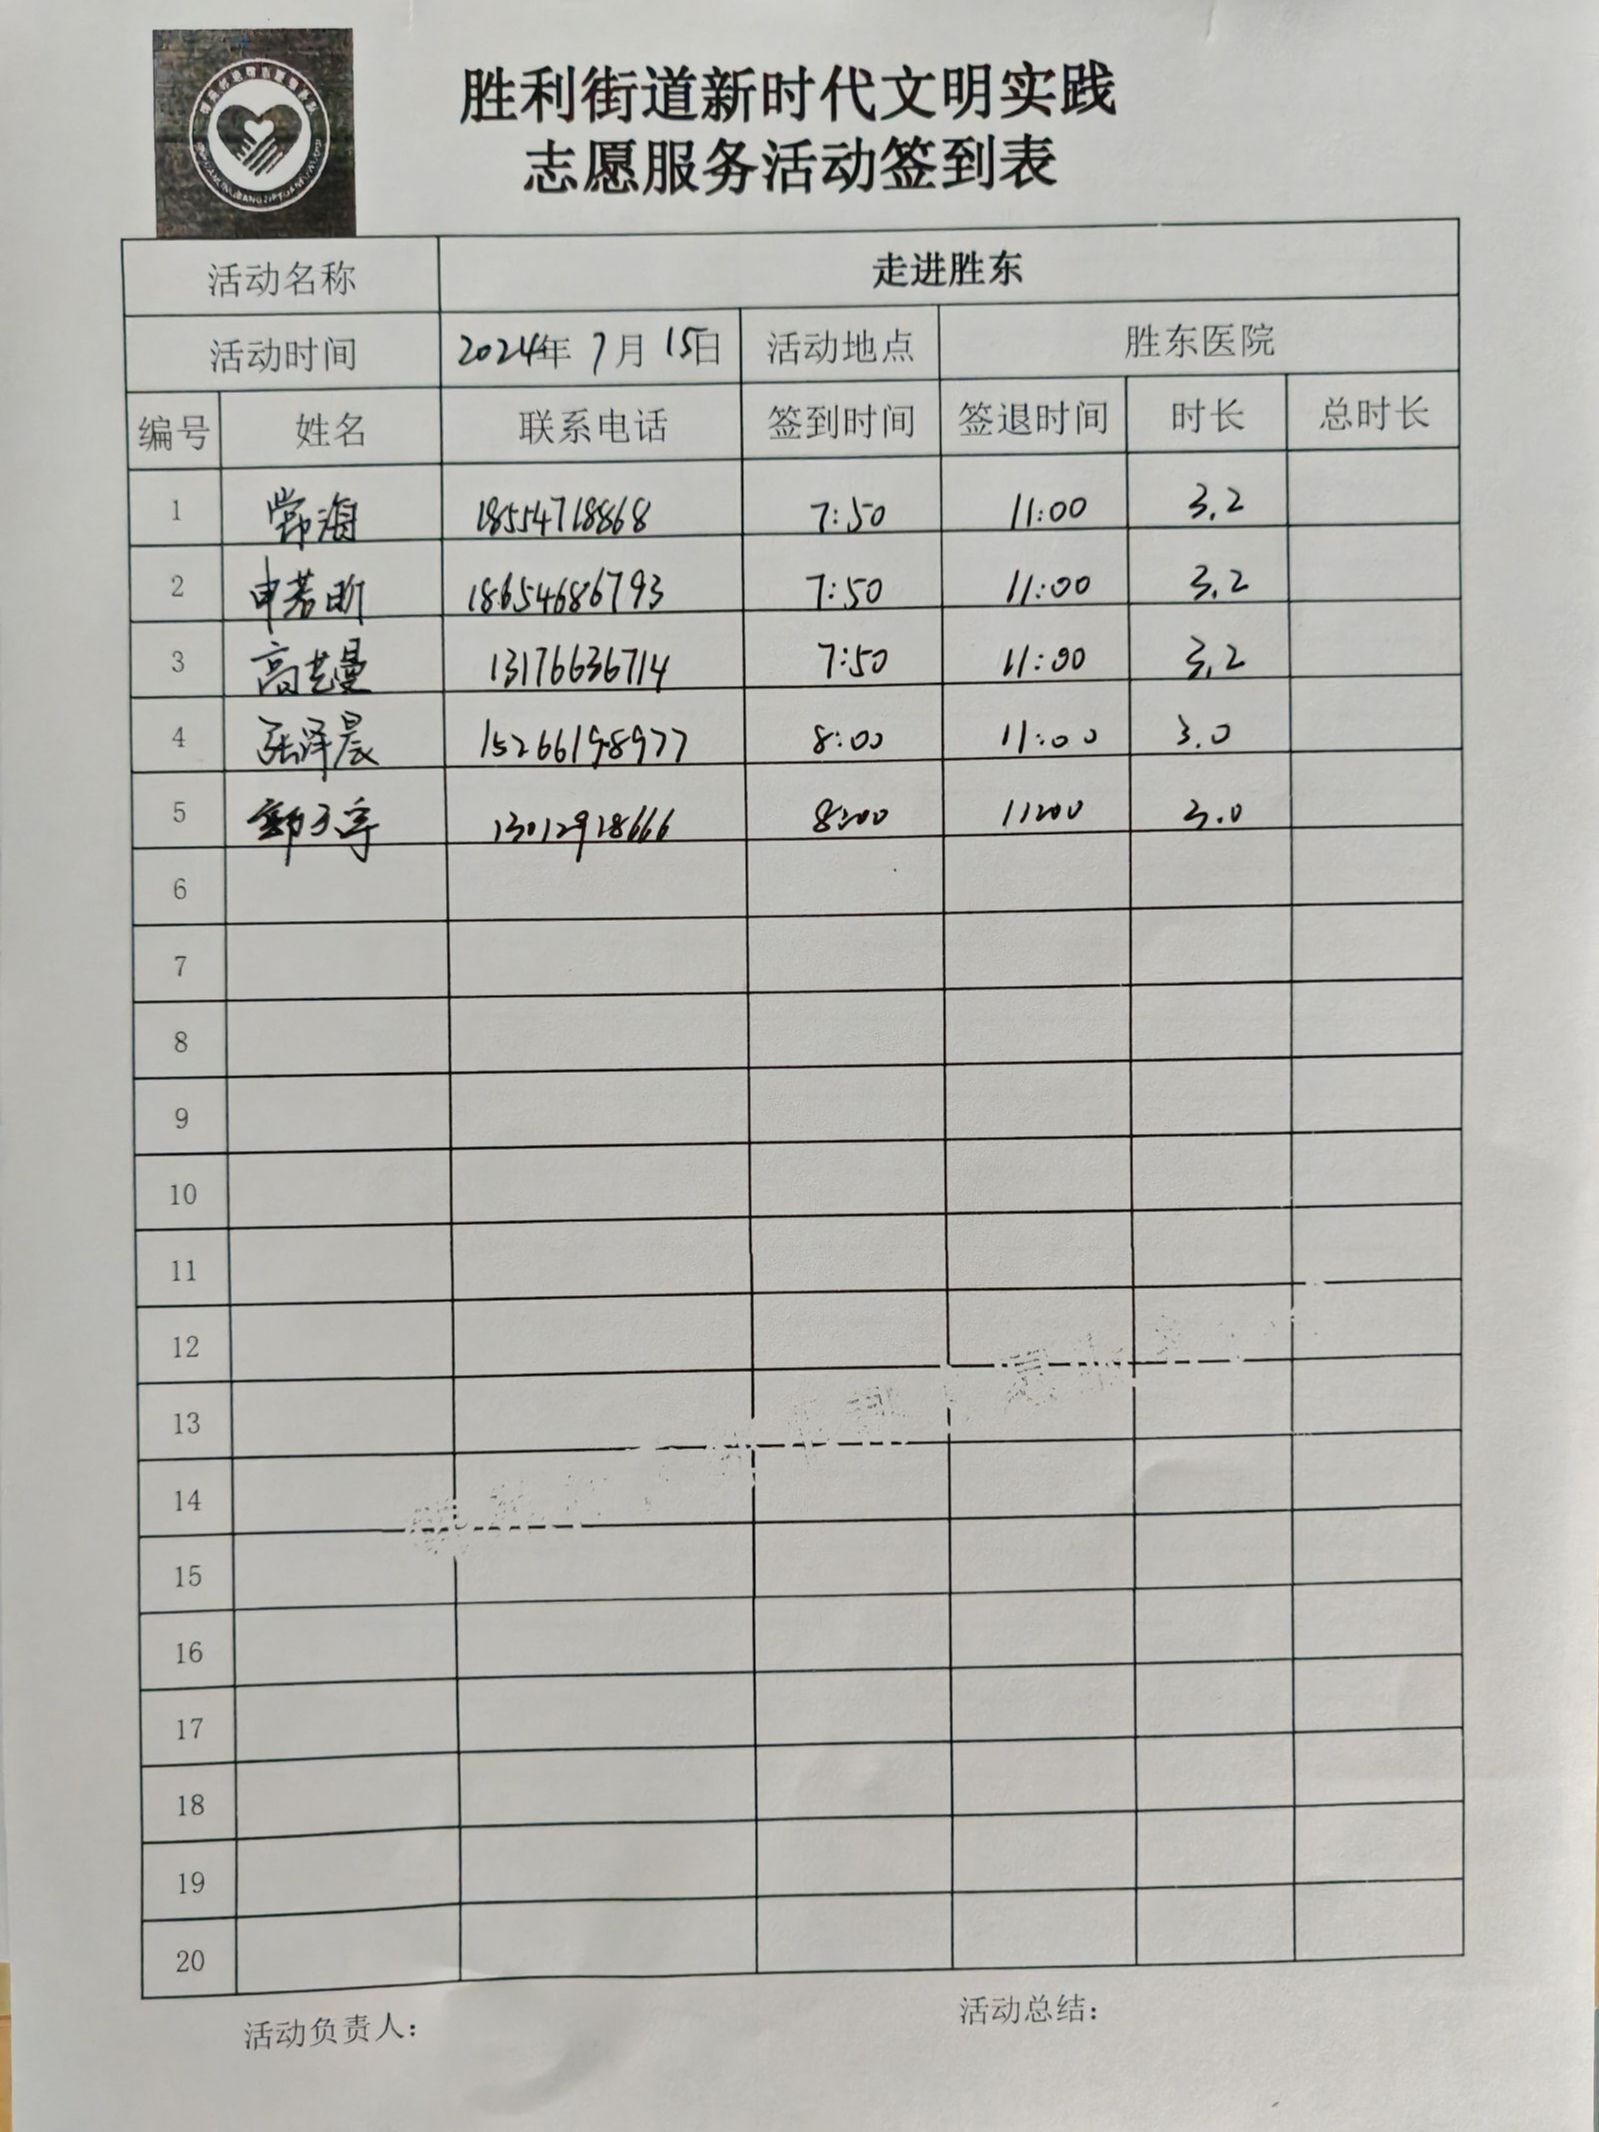 胜利街道新时代文明实践
志愿服务活动签到表
活动名称 走进胜东
活动时间 2024年 7月 15日 活动地点 胜东医院
编号 姓名 联系电话 签到时间 签退时间 时长 总时长
1 海 18554718868 7:50 11:00 3.2
2 申若昕 18654686793 7:50 11:00 3.2
3 高艺曼 13176636714 7:50 11:00 3.2
4 张泽晨 15266198977 8:00 11:00 3.0
5 郭子宇 13012918666 8:00 11:00 3.0
6
7
8
9
10
11
12
13
14
15
16
17
18
19
20
活动负责人： 活动总结：